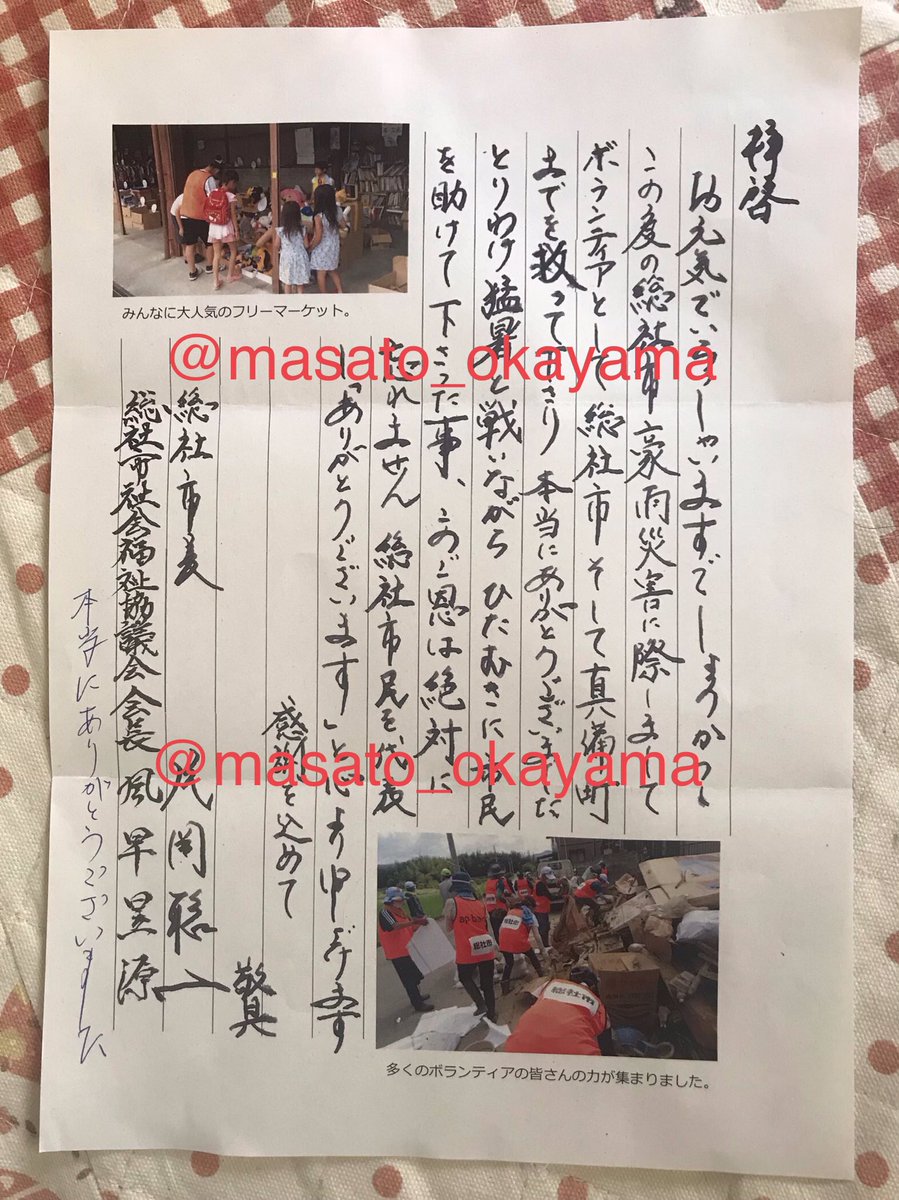 拝啓
お元気でいらっしゃいますでしょうか
この度の総社市豪雨災害に際しまして
ボランティアとして総社市そして真備町
までを救って下さり本当にありがとうございました
とりわけ猛暑と戦いながらひたむきに市民
を助けて下さった事、このご恩は絶対に
忘れません 総社市民を代表
し「ありがとうございます」と心より申しあげます
感謝を込めて
敬具
総社市長 片岡聡一
総社市社会福祉協議会会長 風早昱源
本当にありがとうございました
みんなに大人気のフリーマーケット。
多くのボランティアの皆さんの力が集まりました。
総社市
総社市
総社市
@masato_okayama
@masato_okayama